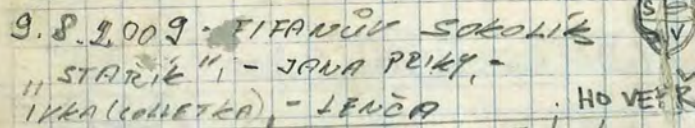 9.8.2009 - FIFANŮV SOKOLÍK
S V
„STAŘÍK", - JANA PRIKY, -
IVKA (COLLETKA), - LENČA
HOVEŘ